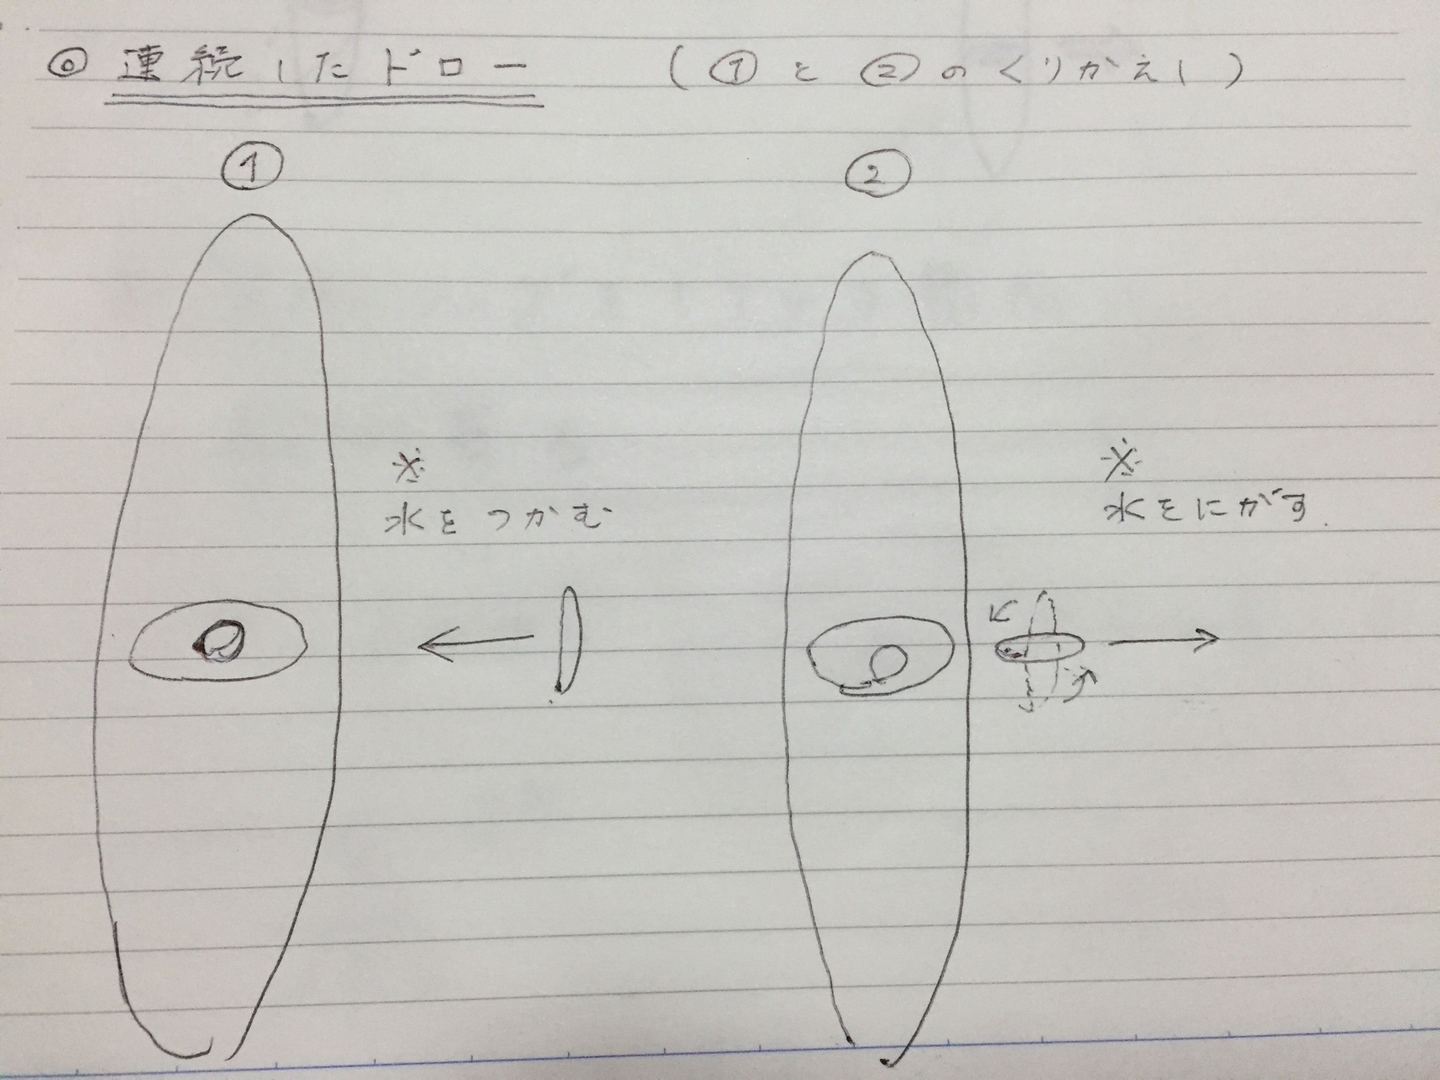 ◎ 連続したドロー (①と②のくりかえし)
① ②
※ ※
水をつかむ 水をにがす.